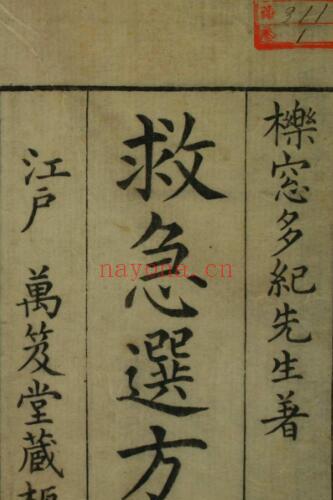 櫟窓多紀先生著
救急選方
江戸 萬笈堂蔵板
311
1
nayona.cn